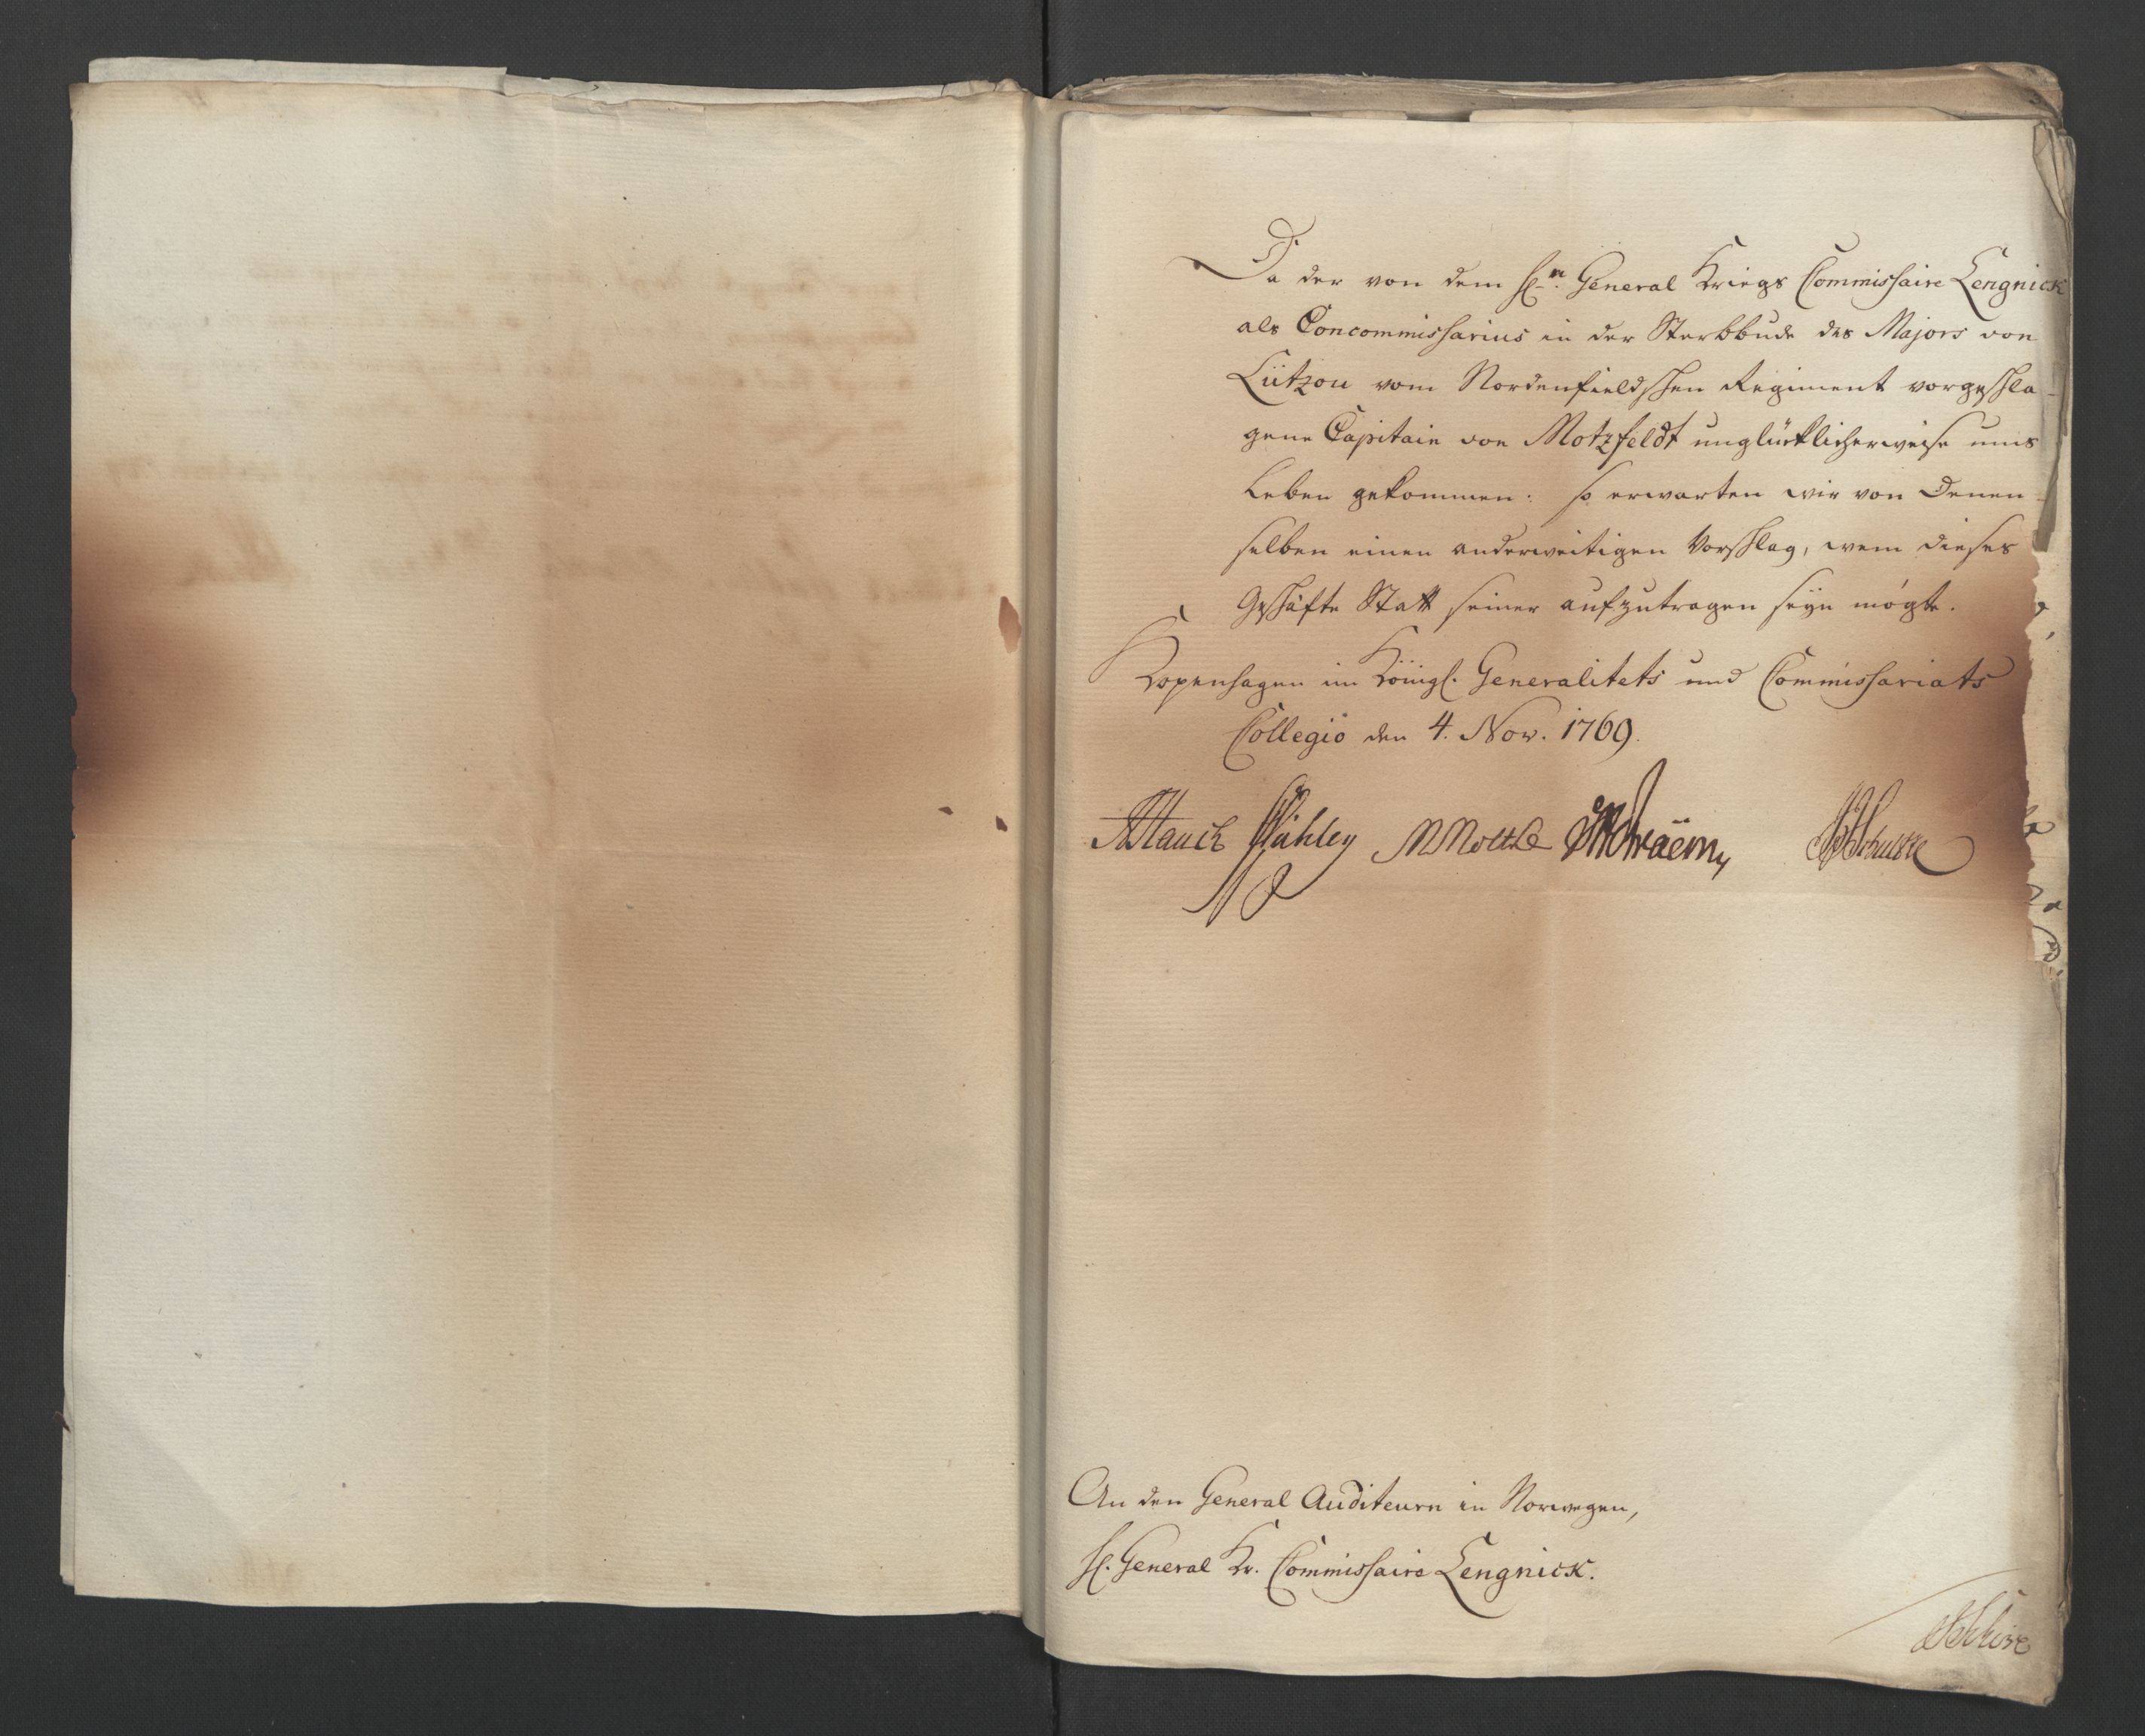 Da der von dem H.rn General Kriegs Commissaire Lengnick
als Concommissarius in der Sterbbude des Majors von
Lützou vom Nordenfieldschen Regiment vorgeschla-
gene Capitain von Motzfeldt unglücklicherweise ums
Leben gekommen: so erwarten wir von Denen-
selben einen anderweitigen Vorschlag, wem dieses
Geschäfte Statt seiner aufzutragen seyn mögte.
Kopenhagen im Königl. Generalitets und Commissariats
Collegio den 4. Nov. 1769.
Hauch WMoltke
An den General Auditeurn in Norwegen,
H. General Kr. Commissaire Lengnick.